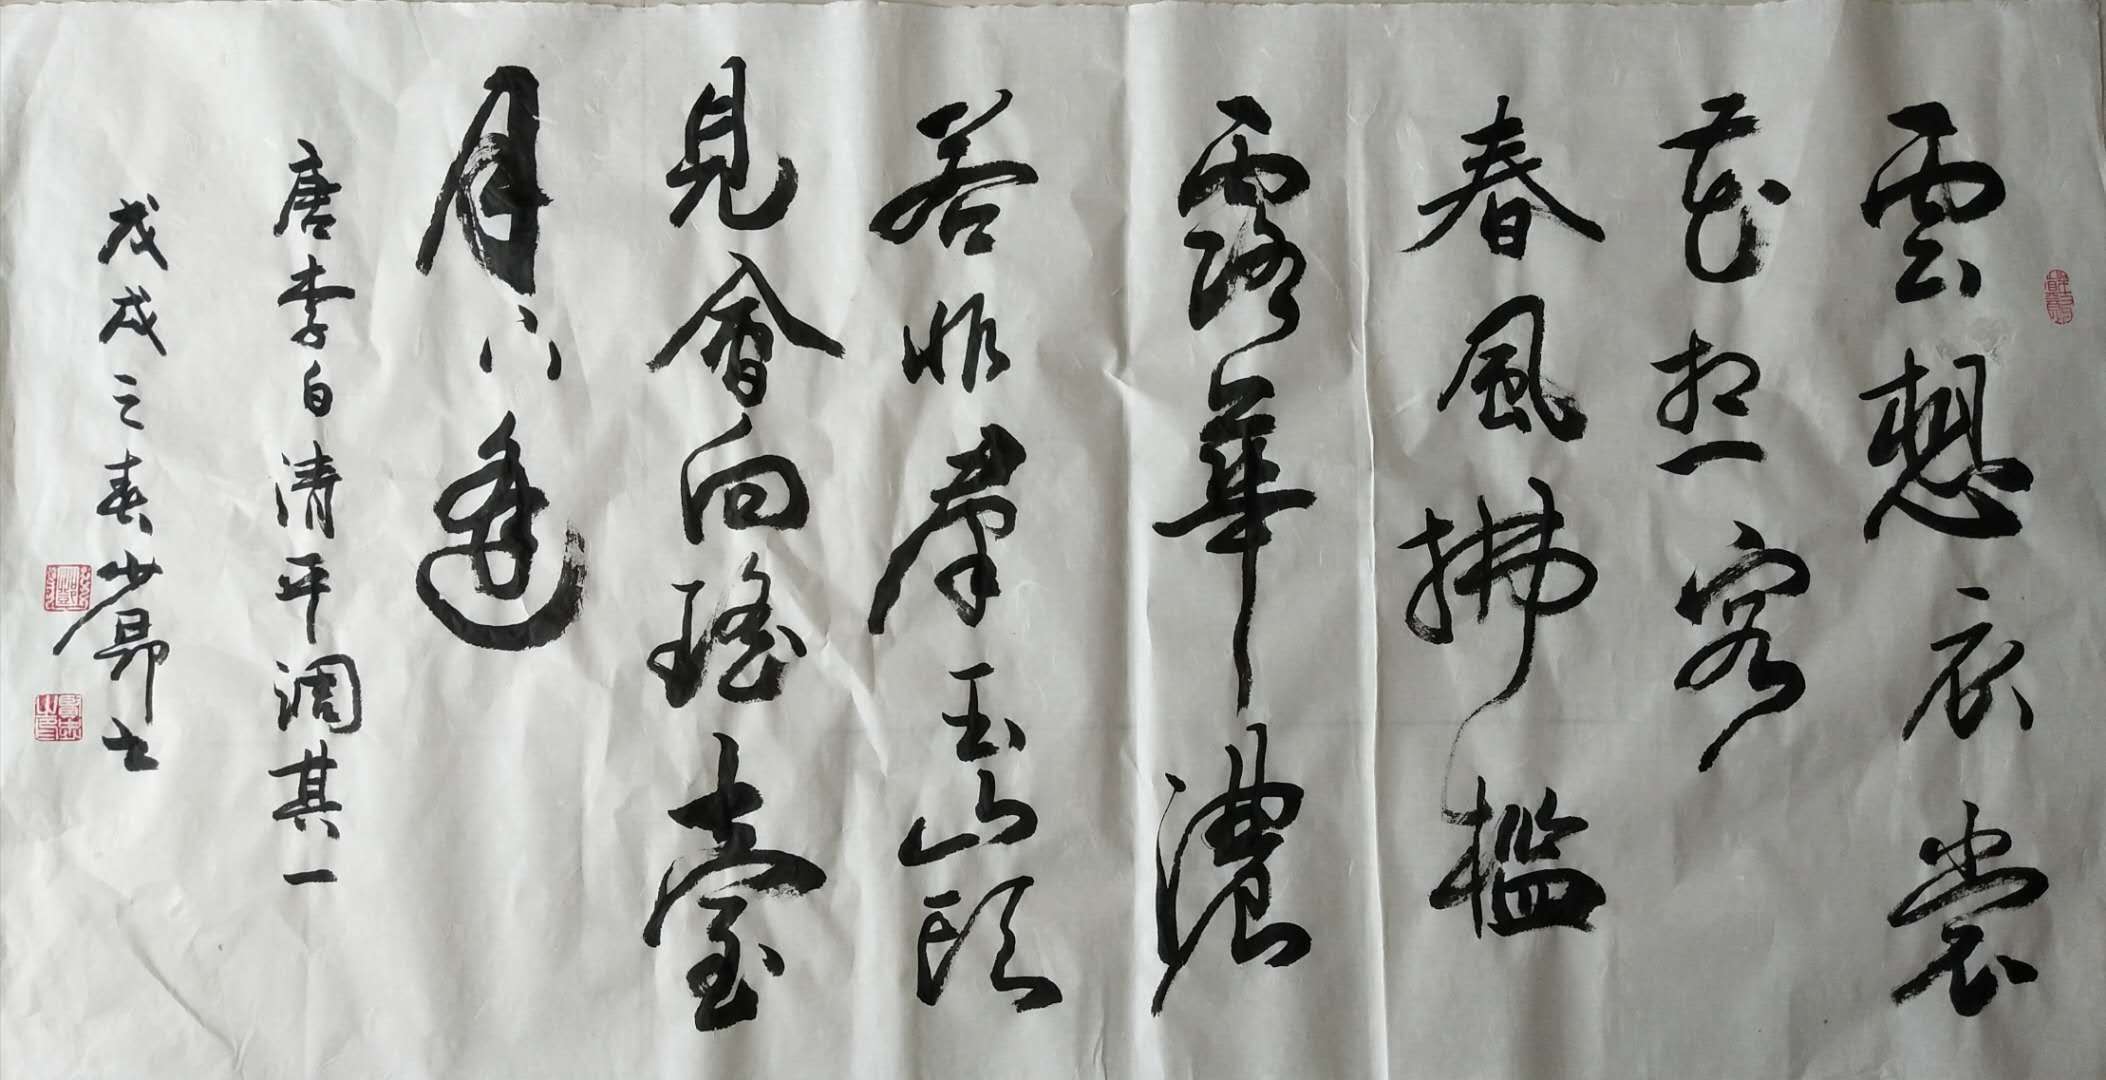 雲想衣裳
花想容
春風拂檻
露華濃
若非羣玉山頭
見會向瑤臺
月下逢
唐李白清平調其一
戊戌之春少昂书